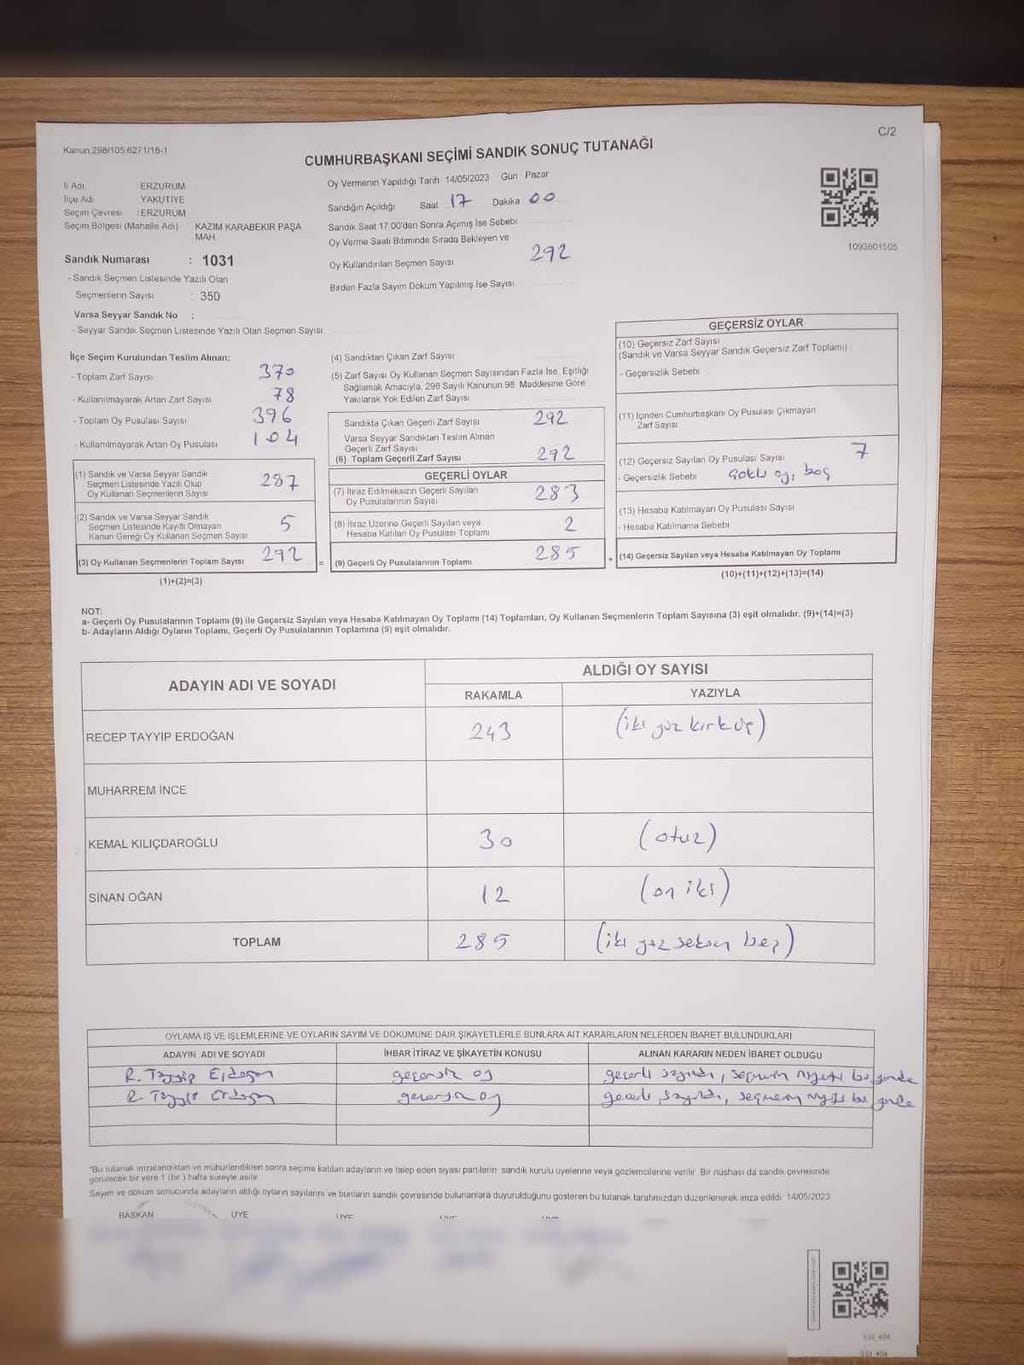 C/2
Kanun;298/105;6271/18-1
CUMHURBAŞKANI SEÇİMİ SANDIK SONUÇ TUTANAĞI
İl Adı ERZURUM
İlçe Adı YAKUTİYE
Seçim Çevresi : ERZURUM
Seçim Bölgesi (Mahalle Adı) KAZIM KARABEKİR PAŞA
MAH.
Sandık Numarası : 1031
- Sandık Seçmen Listesinde Yazılı Olan
Seçmenlerin Sayısı : 350
Varsa Seyyar Sandık No :
- Seyyar Sandık Seçmen Listesinde Yazılı Olan Seçmen Sayısı
Oy Vermenin Yapıldığı Tarih 14/05/2023 Gün Pazar
Sandığın Açıldığı Saat 17 Dakika 00
Sandık Saat 17.00'den Sonra Açımış İse Sebebi
Oy Verme Saati Bitiminde Sırada Bekleyen ve
Oy Kullandırılan Seçmen Sayısı 292
Birden Fazla Sayım Döküm Yapılmış İse Sayısı
1093601505
İlçe Seçim Kurulundan Teslim Alınan;
- Toplam Zarf Sayısı 370
- Kullanılmayarak Artan Zarf Sayısı 78
- Toplam Oy Pusulası Sayısı 396
- Kullanılmayarak Artan Oy Pusulası 104
(1) Sandık ve Varsa Seyyar Sandık
Seçmen Listesinde Yazılı Olup
Oy Kullanan Seçmenlerin Sayısı 287
(2) Sandık ve Varsa Seyyar Sandık
Seçmen Listesinde Kayıtlı Olmayan
Kanun Gereği Oy Kullanan Seçmen Sayısı 5
(3) Oy Kullanan Seçmenlerin Toplam Sayısı 292
(1)+(2)=(3)
(4) Sandıktan Çıkan Zarf Sayısı
(5) Zarf Sayısı Oy Kullanan Seçmen Sayısından Fazla İse, Eşitliği
Sağlamak Amacıyla, 298 Sayılı Kanunun 98. Maddesine Göre
Yakılarak Yok Edilen Zarf Sayısı
Sandıkta Çıkan Geçerli Zarf Sayısı 292
Varsa Seyyar Sandıktan Teslim Alınan
Geçerli Zarf Sayısı
(6) Toplam Geçerli Zarf Sayısı 292
GEÇERLİ OYLAR
(7) İtiraz Edilmeksizin Geçerli Sayılan
Oy Pusulalarının Sayısı 283
(8) İtiraz Üzerine Geçerli Sayılan veya
Hesaba Katılan Oy Pusulası Toplamı 2
= (9) Geçerli Oy Pusulalarının Toplamı 285 +
GEÇERSİZ OYLAR
(10) Geçersiz Zarf Sayısı
(Sandık ve Varsa Seyyar Sandık Geçersiz Zarf Toplamı)
- Geçersizlik Sebebi
(11) İçinden Cumhurbaşkanı Oy Pusulası Çıkmayan
Zarf Sayısı
(12) Geçersiz Sayılan Oy Pusulası Sayısı 7
- Geçersizlik Sebebi oy, boş
(13) Hesaba Katılmayan Oy Pusulası Sayısı
- Hesaba Katılmama Sebebi
(14) Geçersiz Sayılan veya Hesaba Katılmayan Oy Toplamı
(10)+(11)+(12)+(13)=(14)
NOT:
a- Geçerli Oy Pusulalarının Toplamı (9) ile Geçersiz Sayılan veya Hesaba Katılmayan Oy Toplamı (14) Toplamları, Oy Kullanan Seçmenlerin Toplam Sayısına (3) eşit olmalıdır. (9)+(14)=(3)
b- Adayların Aldığı Oyların Toplamı, Geçerli Oy Pusulalarının Toplamına (9) eşit olmalıdır.
ADAYIN ADI VE SOYADI ALDIĞI OY SAYISI
RAKAMLA YAZIYLA
RECEP TAYYİP ERDOĞAN 243 (iki yüz kırk üç)
MUHARREM İNCE
KEMAL KILIÇDAROĞLU 30 (otuz)
SİNAN OĞAN 12 (on iki)
TOPLAM 285 (iki yüz seksen beş)
OYLAMA İŞ VE İŞLEMLERİNE VE OYLARIN SAYIM VE DÖKÜMÜNE DAİR ŞİKAYETLERLE BUNLARA AİT KARARLARIN NELERDEN İBARET BULUNDUKLARI
ADAYIN ADI VE SOYADI İHBAR İTİRAZ VE ŞİKAYETİN KONUSU ALINAN KARARIN NEDEN İBARET OLDUĞU
R. Tayyip Erdoğan geçersiz oy geçerli sayıldı, seçmenin niyeti bu yönde
R. Tayyip Erdoğan geçersiz oy geçerli sayıldı, seçmenin niyeti bu yönde
"Bu tutanak imzalandıktan ve mühürlendikten sonra seçime katılan adayların ve talep eden siyasi partilerin sandık kurulu üyelerine veya gözlemcilerine verilir. Bir nüshası da sandık çevresinde
görülecek bir yere 1 (bir ) hafta süreyle asılır.
Sayım ve döküm sonucunda adayların aldığı oyların sayılarını ve bunların sandık çevresinde bulunanlara duyurulduğunu gösteren bu tutanak tarafımızdan düzenlenerek imza edildi. 14/05/2023
BAŞKAN ÜYE ÜYE